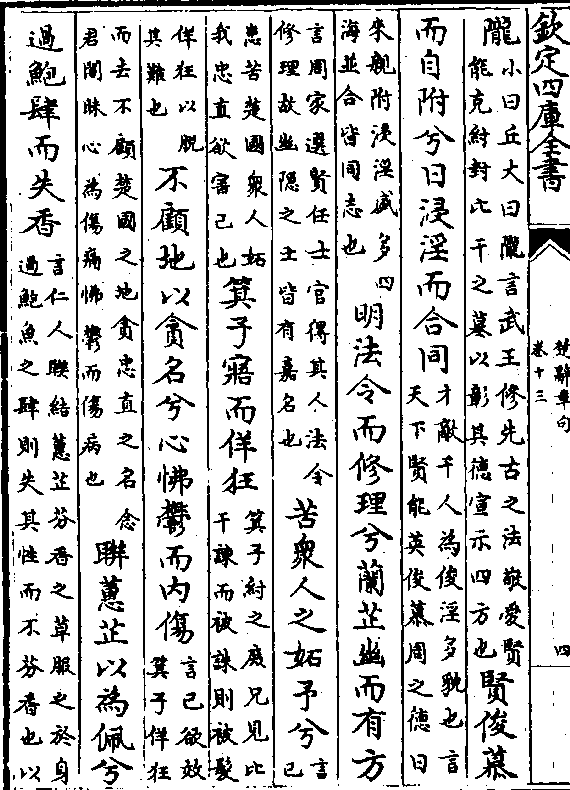 欽定四庫全書
楚辭章句
卷十三
四
隴小曰丘大曰隴言武王修先古之法敬愛賢能克紂封比干之墓以彰其德宣示四方也賢俊慕
而自附兮日浸淫而合同才敵千人為俊淫多貌也言天下賢能英俊慕周之德日
來親附浸淫盛多四海並合皆同志也明法令而修理兮蘭芷幽而有方
言周家選賢任士官得其人法令修理故幽隱之士皆有嘉名也苦衆人之妬予兮言己
患苦楚國衆人妬我忠直欲害己也箕子寤而佯狂箕子紂之庶兄見比干諫而被誅則被髮
佯狂以脫其難也不顧地以貪名兮心怫鬱而内傷言己欲效箕子佯狂
而去不顧楚國之地貪忠直之名念君闇昧心為傷痛怫鬱而傷病也聯蕙芷以為佩兮
過鮑肆而失香言仁人聯結蕙芷芬香之草服之於身過鮑魚之肆則失其性而不芬香也以